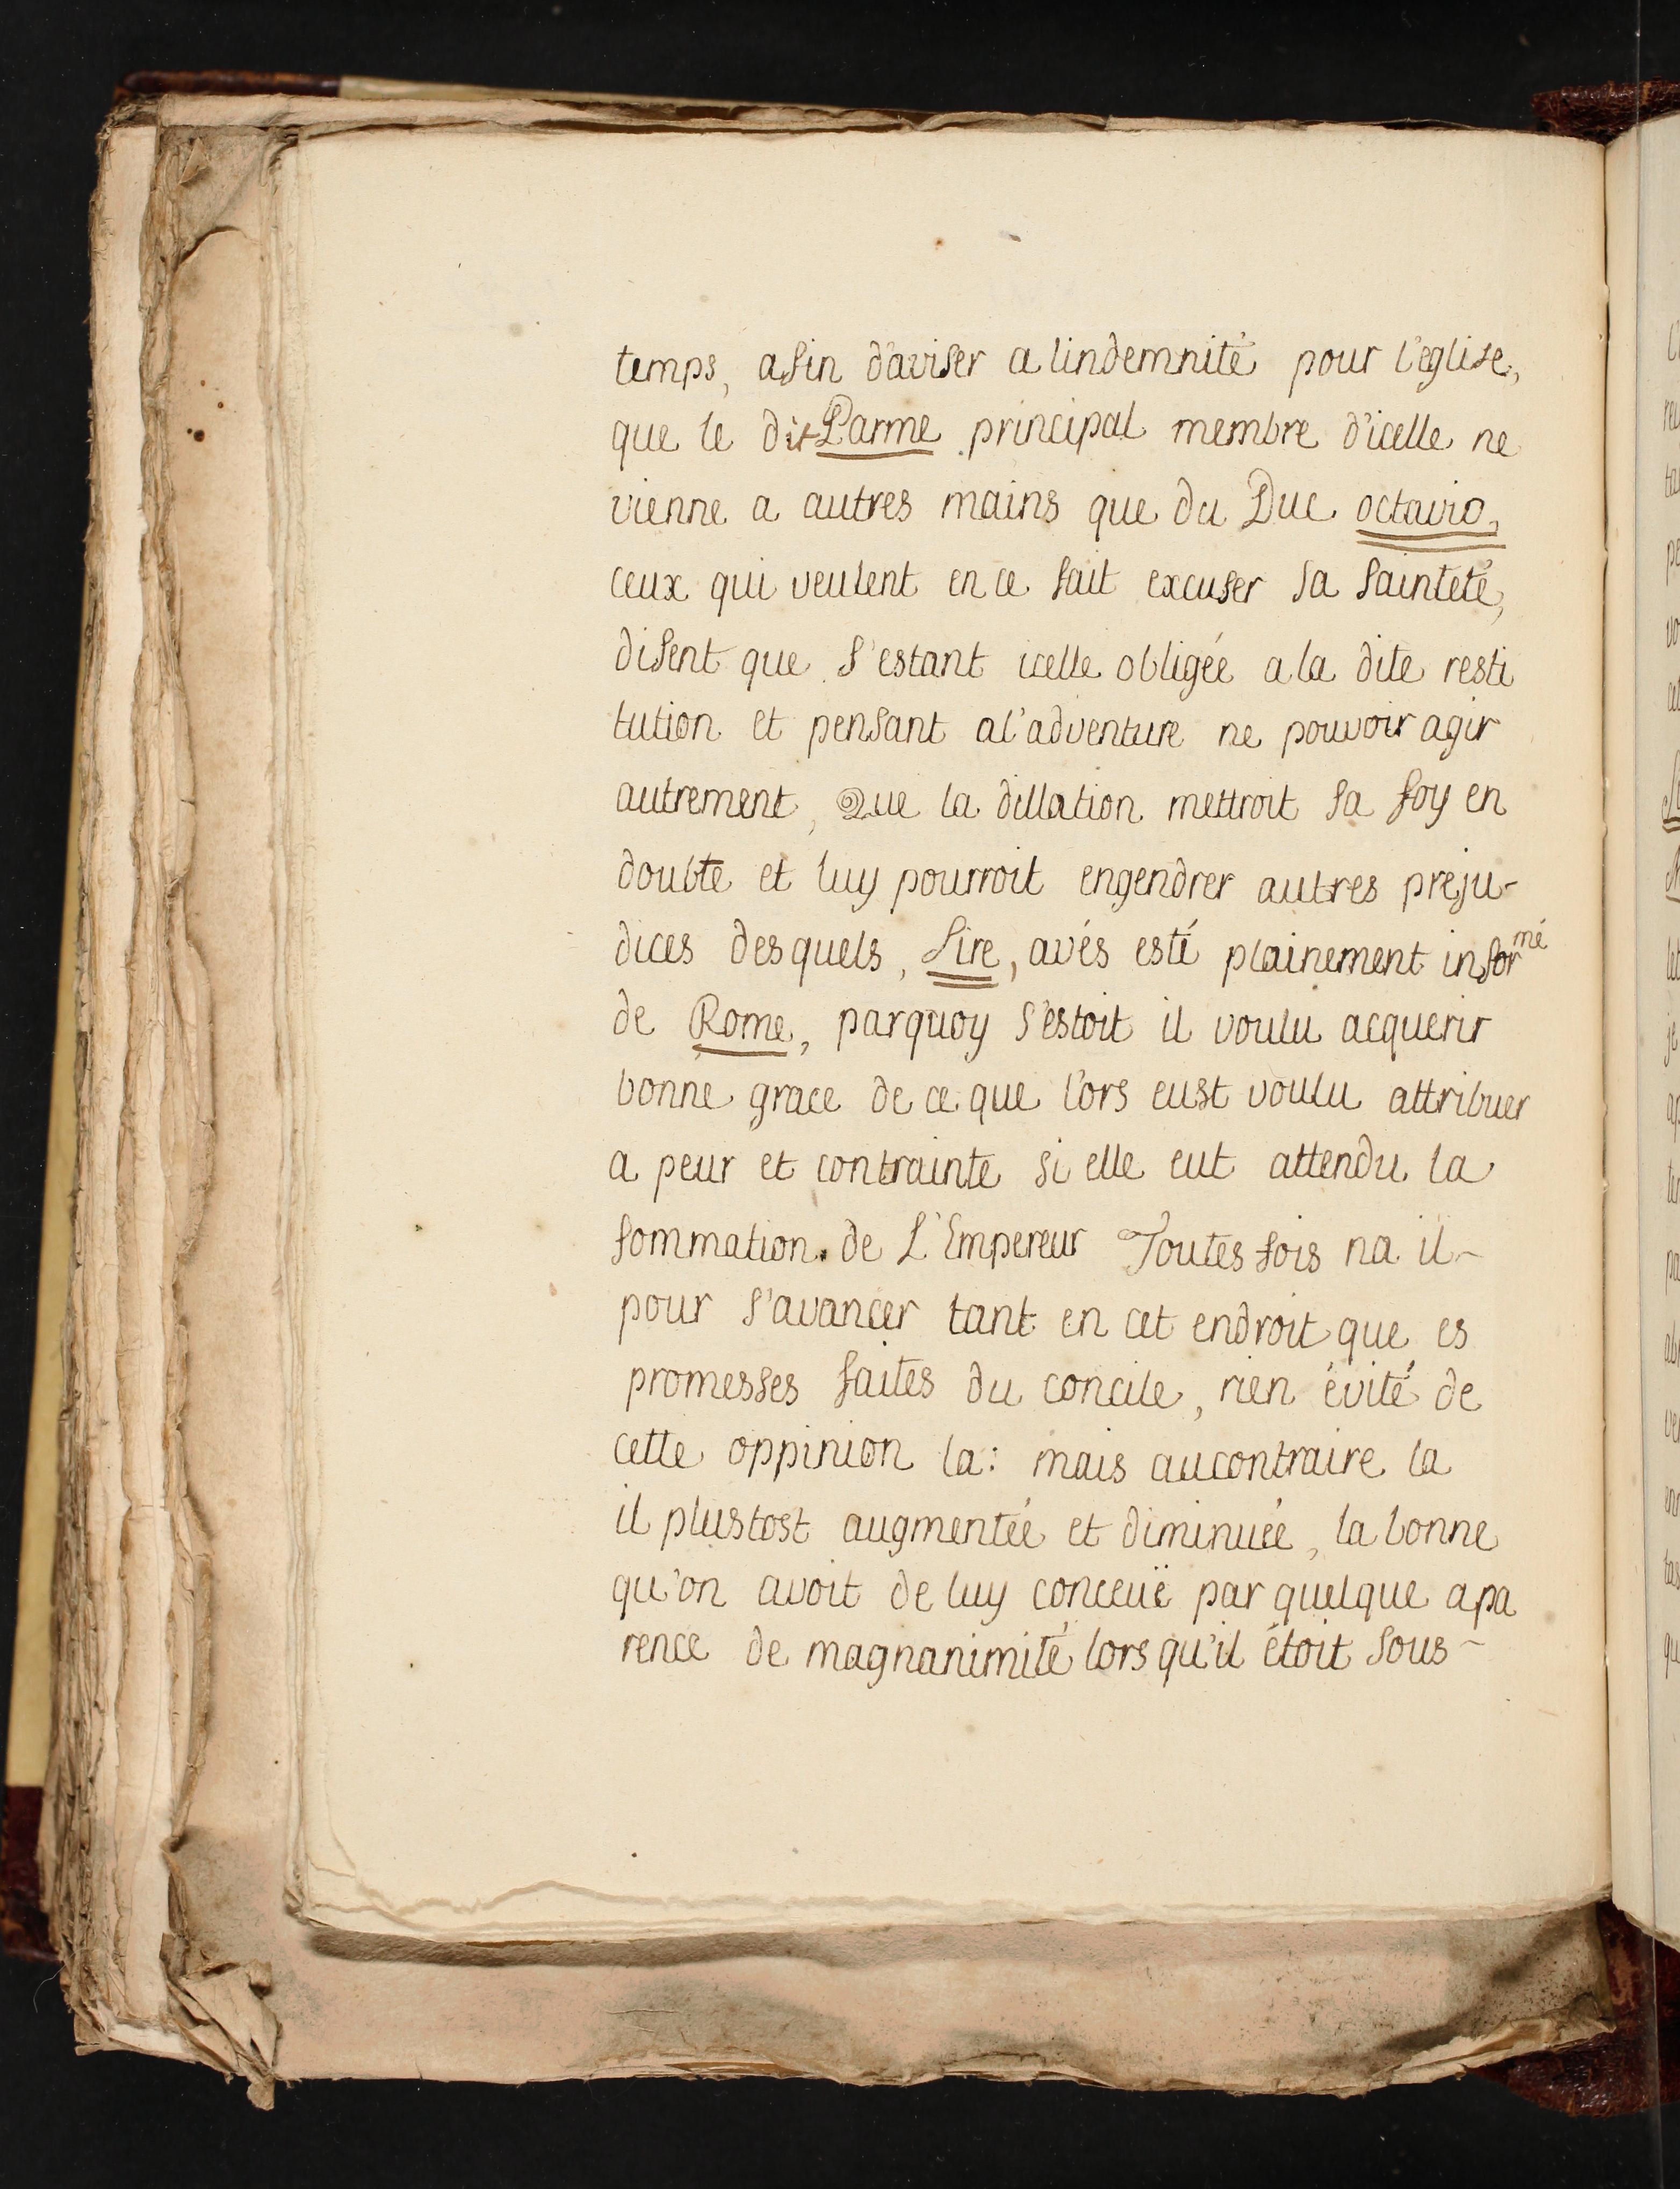 temps, afin d'aviser a lindemnité pour l'eglise,
que le dit Parme principal membre d'icelle ne
vienne a autres mains que du Duc octavio,
ceux qui veulent en ce fait excuser sa sainteté,
disent que s'estant icelle obligée a la dite resti
tution et pensant al'adventure ne pouvoir agir
autrement, Que la dillation mettroit sa foy en
doubte et luy pourroit engendrer autres preju-
dices desquels, Sire, avés esté plainement informé
de Rome, parquoy s'estoit il voulu acquerir
bonne grace de ce que l'ors eust voulu attribuer
a peur et contrainte si elle eut attendu la
sommation. de L'Empereur Toutes fois na il-
pour s'avancer tant en cet endroit que es
promesses faites du concile, rien évité de
cette oppinion la: mais aucontraire la
il plustost augmentée et diminuée, la bonne
qu'on avoit de luy conceuë par quelque apa
rence de magnanimité lors qu'il étoit sous-